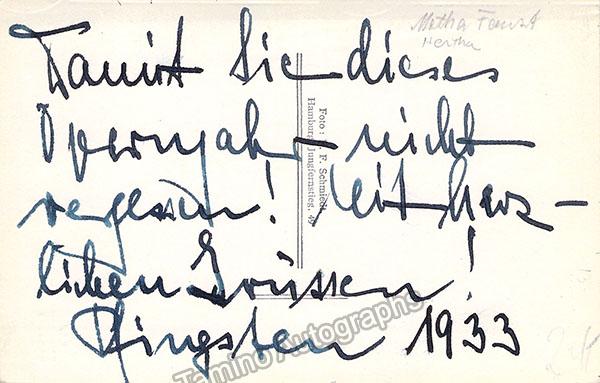 Metha Faust
Hertha
Damit Sie dieses
Opernjahr nicht
vergessen! Mit herz-
lichen Grüssen!
Pfingsten 1933
Foto: F. Schmiedt
Hamburg, Jungfernstieg. 49
Tamino Autographs